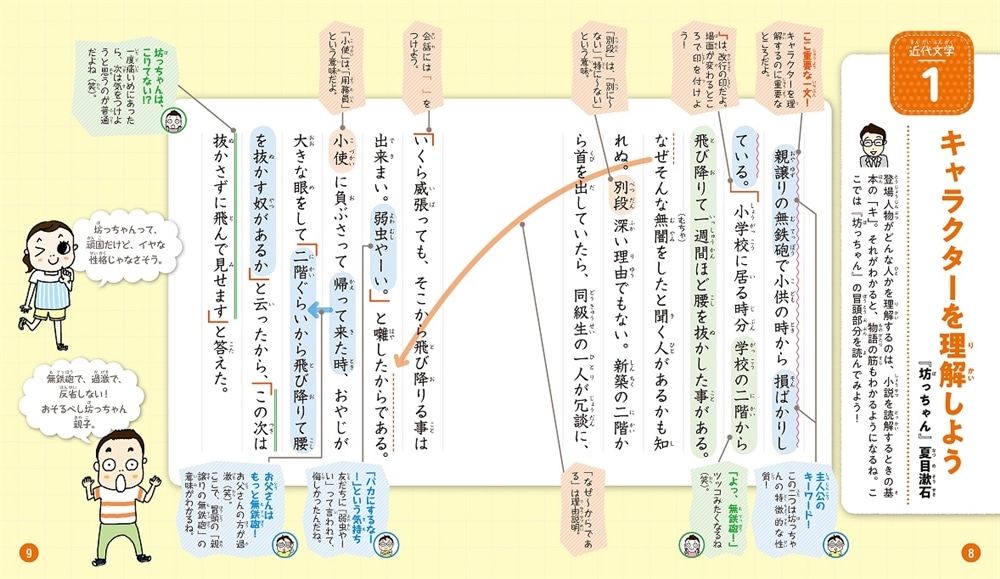 近代文学
1
キャラクターを理解しよう
『坊っちゃん』夏目漱石
登場人物がどんな人かを理解するのは、小説を読解するときの基
本の「キ」。それがわかると、物語の筋もわかるようになるね。こ
こでは『坊っちゃん』の冒頭部分を読んでみよう！
ここ重要な一文！
キャラクターを理
解するのに重要な
ところだよ。
「は、改行の印だよ。
場面が変わるとこ
ろで印を付けよ
う！
「別段」は、「別に〜
ない」「特に〜ない」
という意味。
会話には「　」を
つけよう。
「小使」は、「用務員」
という意味だよ。
坊っちゃんは、
こりてない!?
一度痛いめにあった
ら、次は気をつけよ
うと思うのが普通
だよね（笑）。
親譲りの無鉄砲で小供の時から損ばかりし
ている。「小学校に居る時分学校の二階から
飛び降りて一週間ほど腰を抜かした事がある。
なぜそんな無闇（むちゃ）をしたと聞く人があるかも知
れぬ。別段深い理由でもない。新築の二階か
ら首を出していたら、同級生の一人が冗談に、
「いくら威張っても、そこから飛び降りる事は
出来まい。弱虫やーい。」と囃したからである。
小使に負ぶさって帰って来た時、おやじが
大きな眼をして「二階ぐらいから飛び降りて腰
を抜かす奴があるか」と云ったから、「この次は
抜かさずに飛んで見せます」と答えた。
主人公の
キーワード！
この二つは坊っちゃ
んの特徴的な性
質！
「よっ、無鉄砲！」
ツッコみたくなるね
（笑）。
「なぜ〜からであ
る」は理由説明。
「バカにするなー
！」という気持ち
友だちに「弱虫やー
い」って言われて、
悔しかったんだね。
お父さんは
もっと無鉄砲！
お父さんの方が過
激（笑）。
ここで、冒頭の「親
譲りの無鉄砲」の
意味がわかるね。
坊っちゃんって、
頑固だけど、イヤな
性格じゃなさそう。
無鉄砲で、過激で、
反省しない！
おそるべし坊っちゃん
親子。
8
9